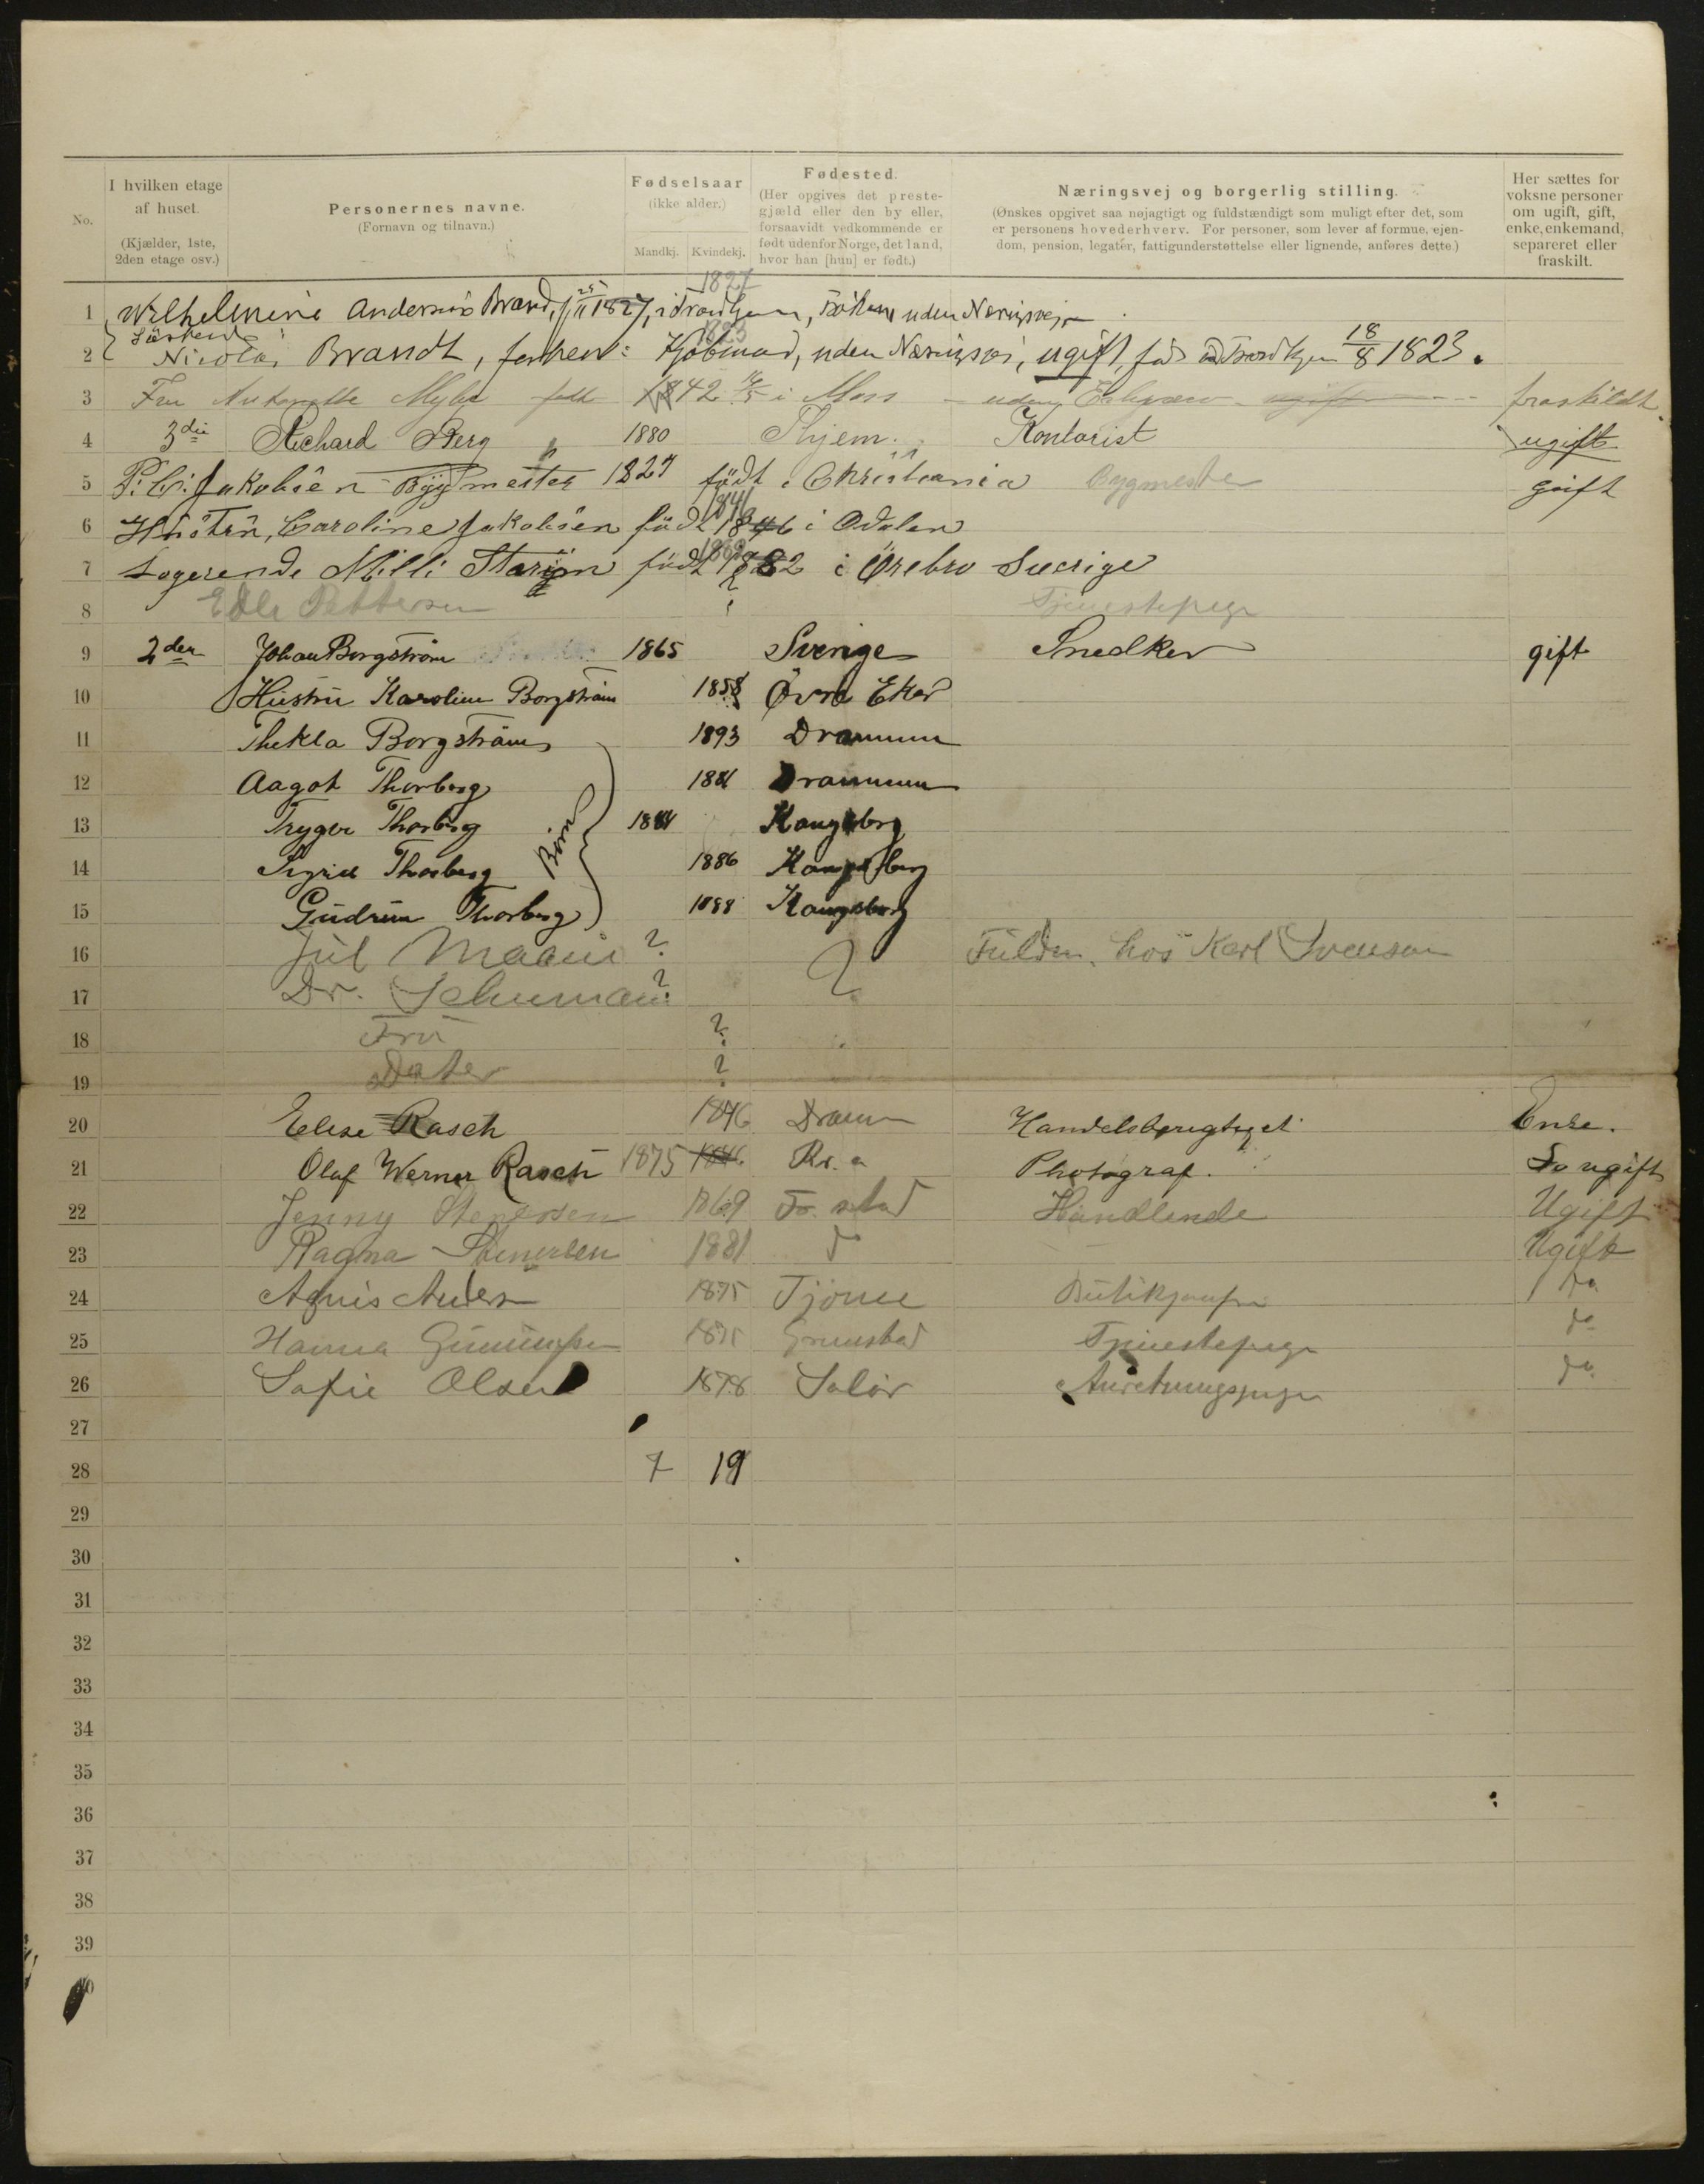 No.
I hvilken etage af huset. (Kjælder, 1ste, 2den etage osv.)
Personernes navne. (Fornavn og tilnavn.)
Fødselsaar (ikke alder.) Mandkj. Kvindekj.
Fødested. (Her opgives det prestegjæld eller den by eller, forsaavidt vedkommende er født udenfor Norge, det land, hvor han [hun] er født.)
Næringsvej og borgerlig stilling. (Ønskes opgivet saa nøjagtigt og fuldstændigt som muligt efter det, som er personens hovederhverv. For personer, som lever af formue, ejendom, pension, legater, fattigunderstøttelse eller lignende, anføres dette.)
Her sættes for voksne personer om ugift, gift, enke, enkemand, separeret eller fraskilt.
1827
1 Wilhelmine Brand, 1827, uden
1823
2 Nicolai Brandt, uden ugift, 18/8 1823.
3 Fru Myhre 1842 i Moss uden fraskildt
4 3die Richard Berg 1880 Thjem. Kontorist ugift
5 P. C. Jakobsen Bygmester 1827 født i Christiania Bygmester gift
1841
6 Hustru, Caroline Jakobsen født 1846 i Odalen
7 Logerende Milli født 1882 i Ørebro Sverige
8 Edle Pettersen ? Tjenestepige
9 2den Johan Borgström 1865 Sverige Snedker gift
10 Hustru Karoline Borgström 1858 Övre Eker
11 Thekla Borgström 1893 Drammen
12 Aagot Thorberg 1881 Drammen
13 Trygve Thorberg 1884 Kongsberg
Börn
14 Sigrid Thorberg 1886 Kongsberg
15 Gudrun Thorberg 1888 Kongsberg
16 Jul ? ? hos Karl Svenson
17 Dr. Schumann ?
18 Fru ?
19 Datter ?
20 Elise Rasch 1846 Dramm Handelsberigtiget Enke.
21 Olaf Werner Rasch 1875 1846 Kr. a Photograf. ugift
22 Jenny Stenersen 1869 Fr. stad Handlende Ugift
23 Ragna Stenersen 1881 do Ugift
24 Agnis Anders 1875 Tjöme Butikjomfru do
25 Hanna Grimstad Tjenestepige do
26 Sofie Olsen 1878 Solör Anretningspige do
27
28 7 19
29
30
31
32
33
34
35
36
37
38
39